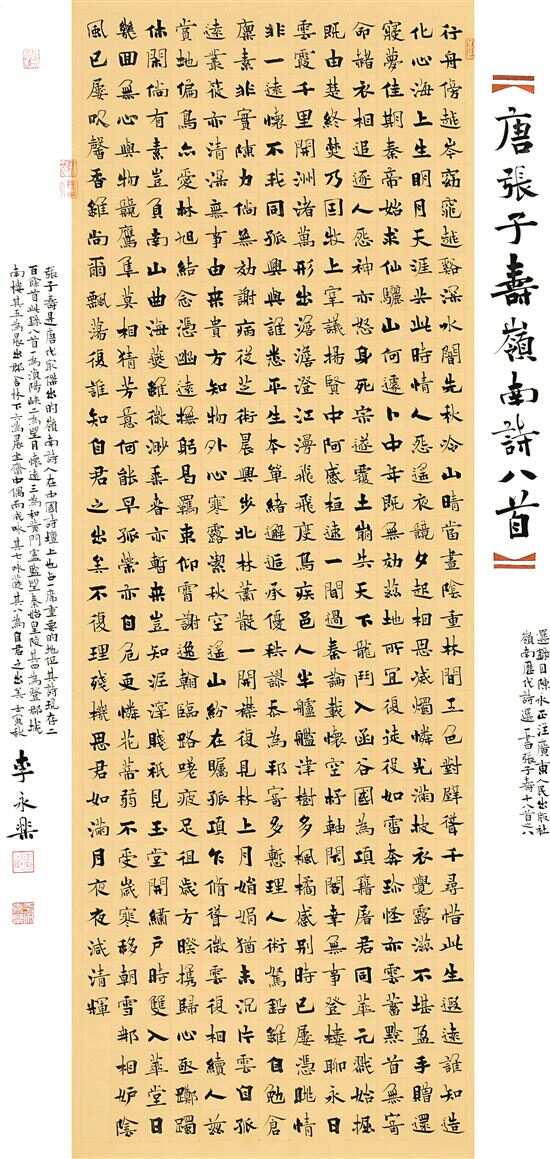 【唐張子壽嶺南詩八首】
選録自陳永正注廣東人民出版社
嶺南歷代詩選一書張子壽十八首之八
行舟傍越岑窈窕越谿深水闇先秋冷山晴當晝陰重林間五色對壁聳千尋惜此生遐遠誰知造
化心海上生明月天涯共此時情人怨遥夜競夕起相思滅燭憐光滿披衣覺露滋不堪盈手贈還
寢夢佳期秦帝始求仙驪山何遽卜中年既無効兹地所宜復徒役如雷奔珍怪亦雲蓄黔首無寄
命赭衣相追逐人怨神亦怒身死宗遂覆土崩失天下龍鬥入函谷國為項籍屠君同華元戮始掘
既由楚終焚乃因牧上宰議揚賢中阿感桓速一聞過秦論載懷空杼軸閑閣幸無事登樓聊永日
雲霞千里開洲渚萬形出澹澹澄江漫飛飛度鳥疾邑人半艫艦津樹多楓橘感別時已屢憑眺情
非一遠懷不我同孤興與誰悉平生本單緒邂逅承優秩謬忝為邦寄多慙理人術駑鉛雖自勉倉
廪素非實陳力倘無効謝病從芝術晨興步北林蕭散一開襟復見林上月娟娟猶未沉片雲自孤
遠叢篠亦清深無事由來貴方知物外心寒露潔秋空遥山紛在矚孤頂乍脩聳微雲復相續人兹
賞地偏鳥亦愛林旭結念憑幽遠撫躬曷羈束仰霄謝逸翰臨路嗟疲足徂歲方暌攜歸心亟躑躅
休閑倘有素豈負南山曲海燕雖微渺乘春亦暫來豈知泥滓賤祇見玉堂開繡戶時雙入華堂日
幾回無心與物競鷹隼莫相猜芳意何能早孤榮亦自危更憐花蒂弱不受歲寒移朝雪那相妒陰
風已屢吹馨香雖尚爾飄蕩復誰知自君之出矣不復理殘機思君如滿月夜夜減清輝
張子壽是唐代最傑出的嶺南詩人在中國詩壇上也占一席重要的地位其詩現存二
百餘首此録八首一為湞陽峽二為望月懷遠三為和黄門盧監望秦始皇陵其四為登郡城
南樓其五為晨出郡舍林下六為晨坐齋中偶而成咏其七咏燕其八為自君之出矣壬寅秋
李永樂